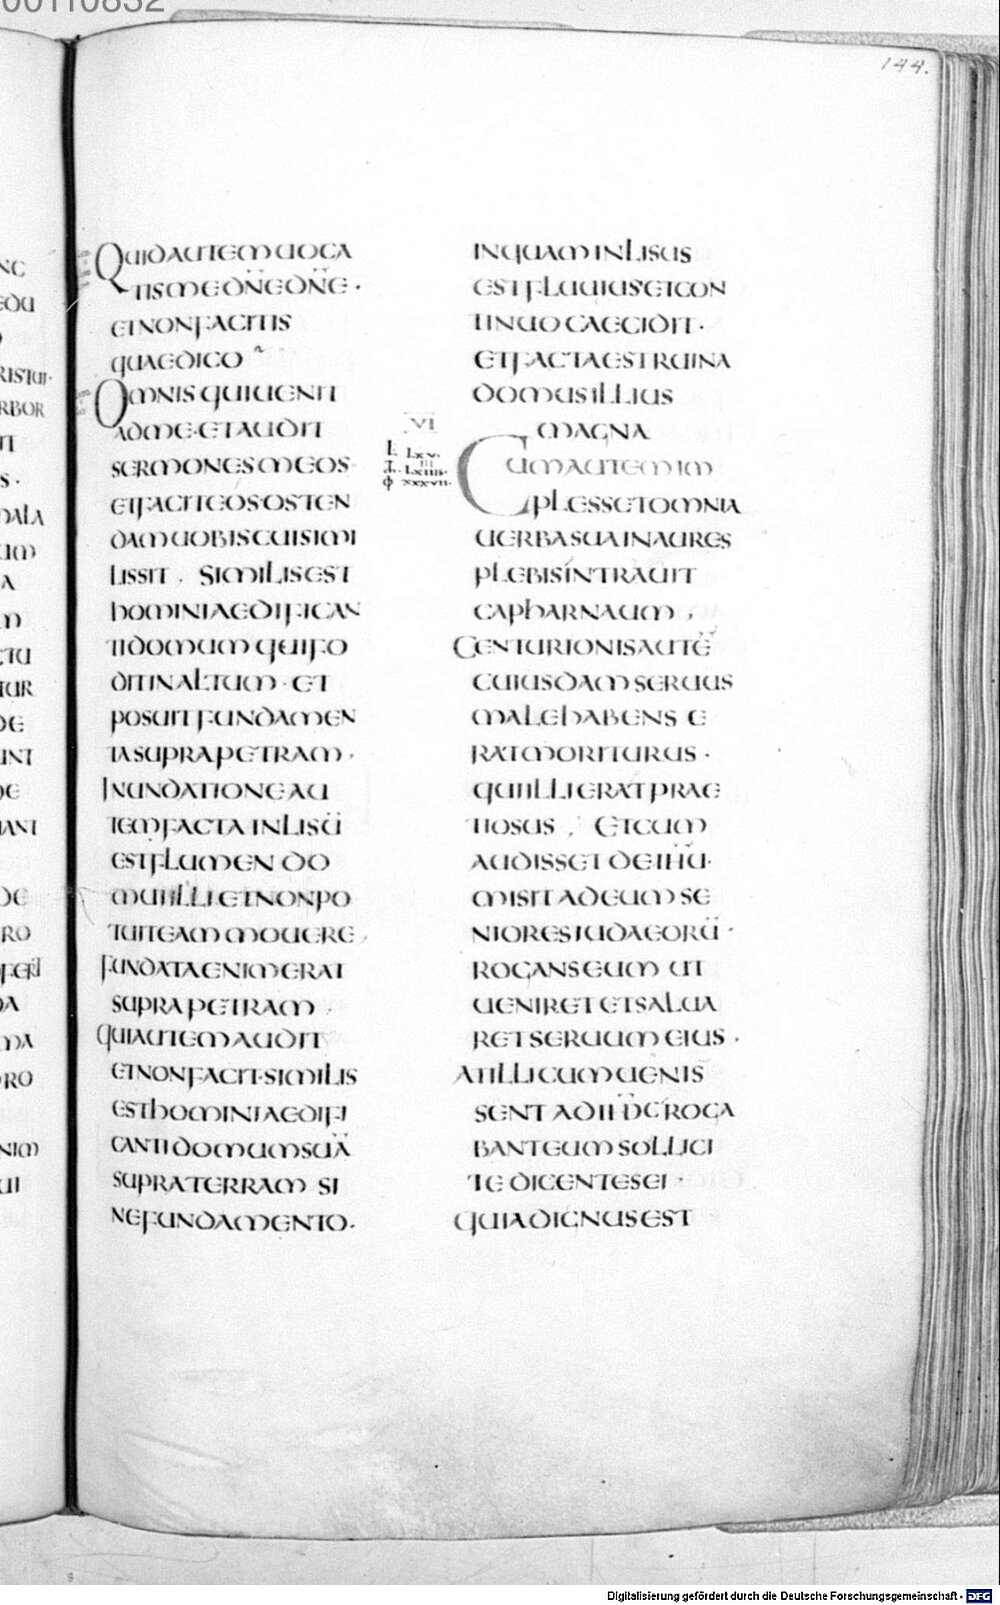 144.
QUIDAUTEMUOCA
TISMEDN̄EDN̄E·
ETNONFACITIS
QUAEDICO
OMNISQUIUENIT
ADME·ETAUDIT
SERMONESMEOS
ETFACITEOSOSTEN
DAMUOBISCUISIMI
LISSIT, SIMILISEST
HOMINIAEDIFICAN
TIDOMUMQUIFO
DITINALTUM·ET
POSUITFUNDAMEN
TASUPRAPETRAM·
INUNDATIONEAU
TEMFACTAINLISŪ
ESTFLUMENDO
MUIILLIETNONPO
TUITEAMMOUERE,
FUNDATAENIMERAT
SUPRAPETRAM,
QUIAUTEMAUDIT
ETNONFACIT·SIMILIS
ESTHOMINIAEDIFI
CANTIDOMUMSUĀ
SUPRATERRAM SI
NEFUNDAMENTO·
INQUAMINLISUS
ESTFLUUIUS·ETCON
TINUOCAECIDIT·
ETFACTAESTRUINA
DOMUSILLIUS
MAGNA
VI
L LXV·
CUMAUTEMIM
PLESSETOMNIA
UERBASUAINAURES
PLEBISINTRAUIT
CAPHARNAUM,
CENTURIONISAUTĒ
CUIUSDAMSERUUS
MALEHABENS E
RATMORITURUS·
QUIILLIERATPRAE
TIOSUS, ETCUM
AUDISSETDEIHŪ·
MISITADEUMSE
NIORESIUDAEORŪ·
ROGANSEUM UT
UENIRETETSALUA
RETSERUUMEIUS·
ATILLICUMUENIS
SENTADIHM̄ROGA
BANTEUMSOLLICI
TEDICENTESEI·
QUIADIGNUSEST
Digitalisierung gefördert durch die Deutsche Forschungsgemeinschaft - DFG